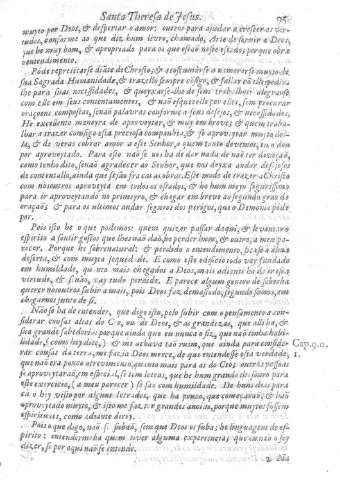 Santa Theresa de Jesus.
muyto por Deos, & despertar o amor: outros para ajudar a crescer as vir-
tudes, conforme ao que diz hum livro, chamado, Arte de servir a Deos,
que he muy bom, & apropriado para os que estão neste estado, porque obra o
entendimento.
Póde representarse diãte de Christo, & costumarse a namorarse muyto de
sua Sagrada Humanidade, & trazello sempre cõsigo, & fallar cõ elle, pedir-
lhe para suas necessidades, & queyxarse-lhe de seus trabalhos: alegrarse
com elle em seus contentamentos, & não esquecello por elles, sem procurar
oraçoens compostas, senaõ palavras conforme a seus desejos, & necessidades.
He excellente maneyra de aproveytar, & muy em breve; & quem traba-
lhar a trazer comsigo esta preciosa companhia, & se aproveytar muyto de-
la, & de veras cobrar amor a este Senhor, a quem tanto devemos, eu o dou
por aproveytado. Para isto não se nos ha de dar nada de naõ ter devaçaõ,
como tenho dito, senaõ agradecer ao Senhor, que nos deyxa andar desejosos
de contentallo, ainda que sejão fracas as obras. Este modo de trazer a Christo
com nósoutros aproveyta em todos os estados, & he hum meyo segurissimo
para ir aproveytando no primeyro, & chegar em breve ao segundo grao de
oraçaõ; & para os ultimos andar seguros dos perigos, que o Demonio póde
por.
Pois isto he o que podemos: quem quizer passar daqui, & levantar o
espirito a sentir gostos que lhos naõ daõ, he perder hum, & outro, a meu pa-
recer. Porque he sobrenatural; & perdido o entendimento, fica-se a alma
deserta, & com muyta sequidade. E como este edificio todo vay fundado
em humildade, quanto mais chegados a Deos, mais adiante ha de ir esta
virtude, & senão, vay tudo perdido. E parece algum genero de soberba
querer nósoutros subir a mais, pois Deos faz demasiado, segundo somos, em
chegarmos junto de si.
Não se ha de entender, que digo isto, pelo subir com o pensamento a con-
siderar cousas altas do Ceo, ou de Deos, & as grandezas, que alli ha, &
sua grande sabedoria: porque ainda que eu nunca o fiz, que naõ tinha habi-
lidade, (como hey dito,) & me achava taõ ruim, que ainda para conside- Cap.9.n.
rar cousas da terra, me fazia Deos merce, de que entendesse esta verdade, 1.
que naõ era pouco atrevimento, quanto mais para as do Ceo; outras pessoas
se aproveytaraõ, em especial, se tem letras, que he hum grande thesouro para
este exercicio, (a meu parecer) se saõ com humildade. De huns dias para
ca o hey visto por alguns letrados, que ha pouco, que começaraõ, & haõ
aproveytado muyto, & isto me faz ter grandes ancias, porque muytos fossem
espirituaes, como adiante direy.
Pois o que digo, naõ se subaõ, sem que Deos os suba; he linguagem de es-
pirito: entenderme-ha quem tiver alguma experiencia; que eu não o sey
dizer, se por aqui naõ se entende.